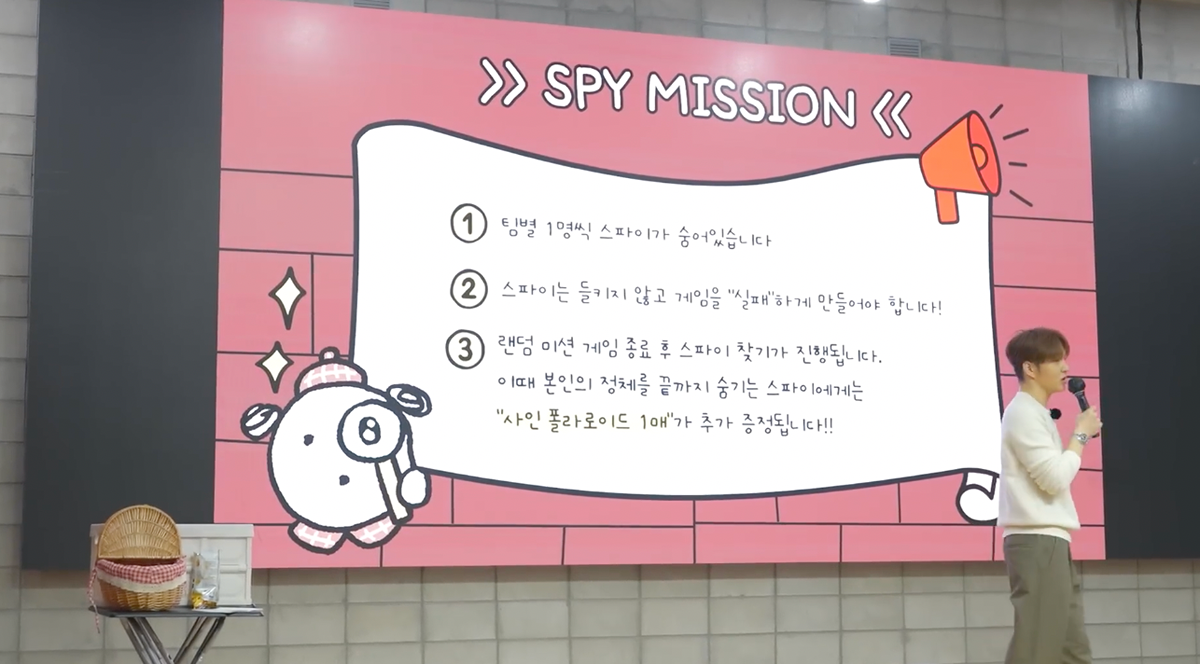 >> SPY MISSION <<
1 팀별 1명씩 스파이가 숨어있습니다
2 스파이는 들키지 않고 게임을 "실패"하게 만들어야 합니다!
3 랜덤 미션 게임 종료 후 스파이 찾기가 진행됩니다.
이때 본인의 정체를 끝까지 숨기는 스파이에게는
"사인 폴라로이드 1매"가 추가 증정됩니다!!